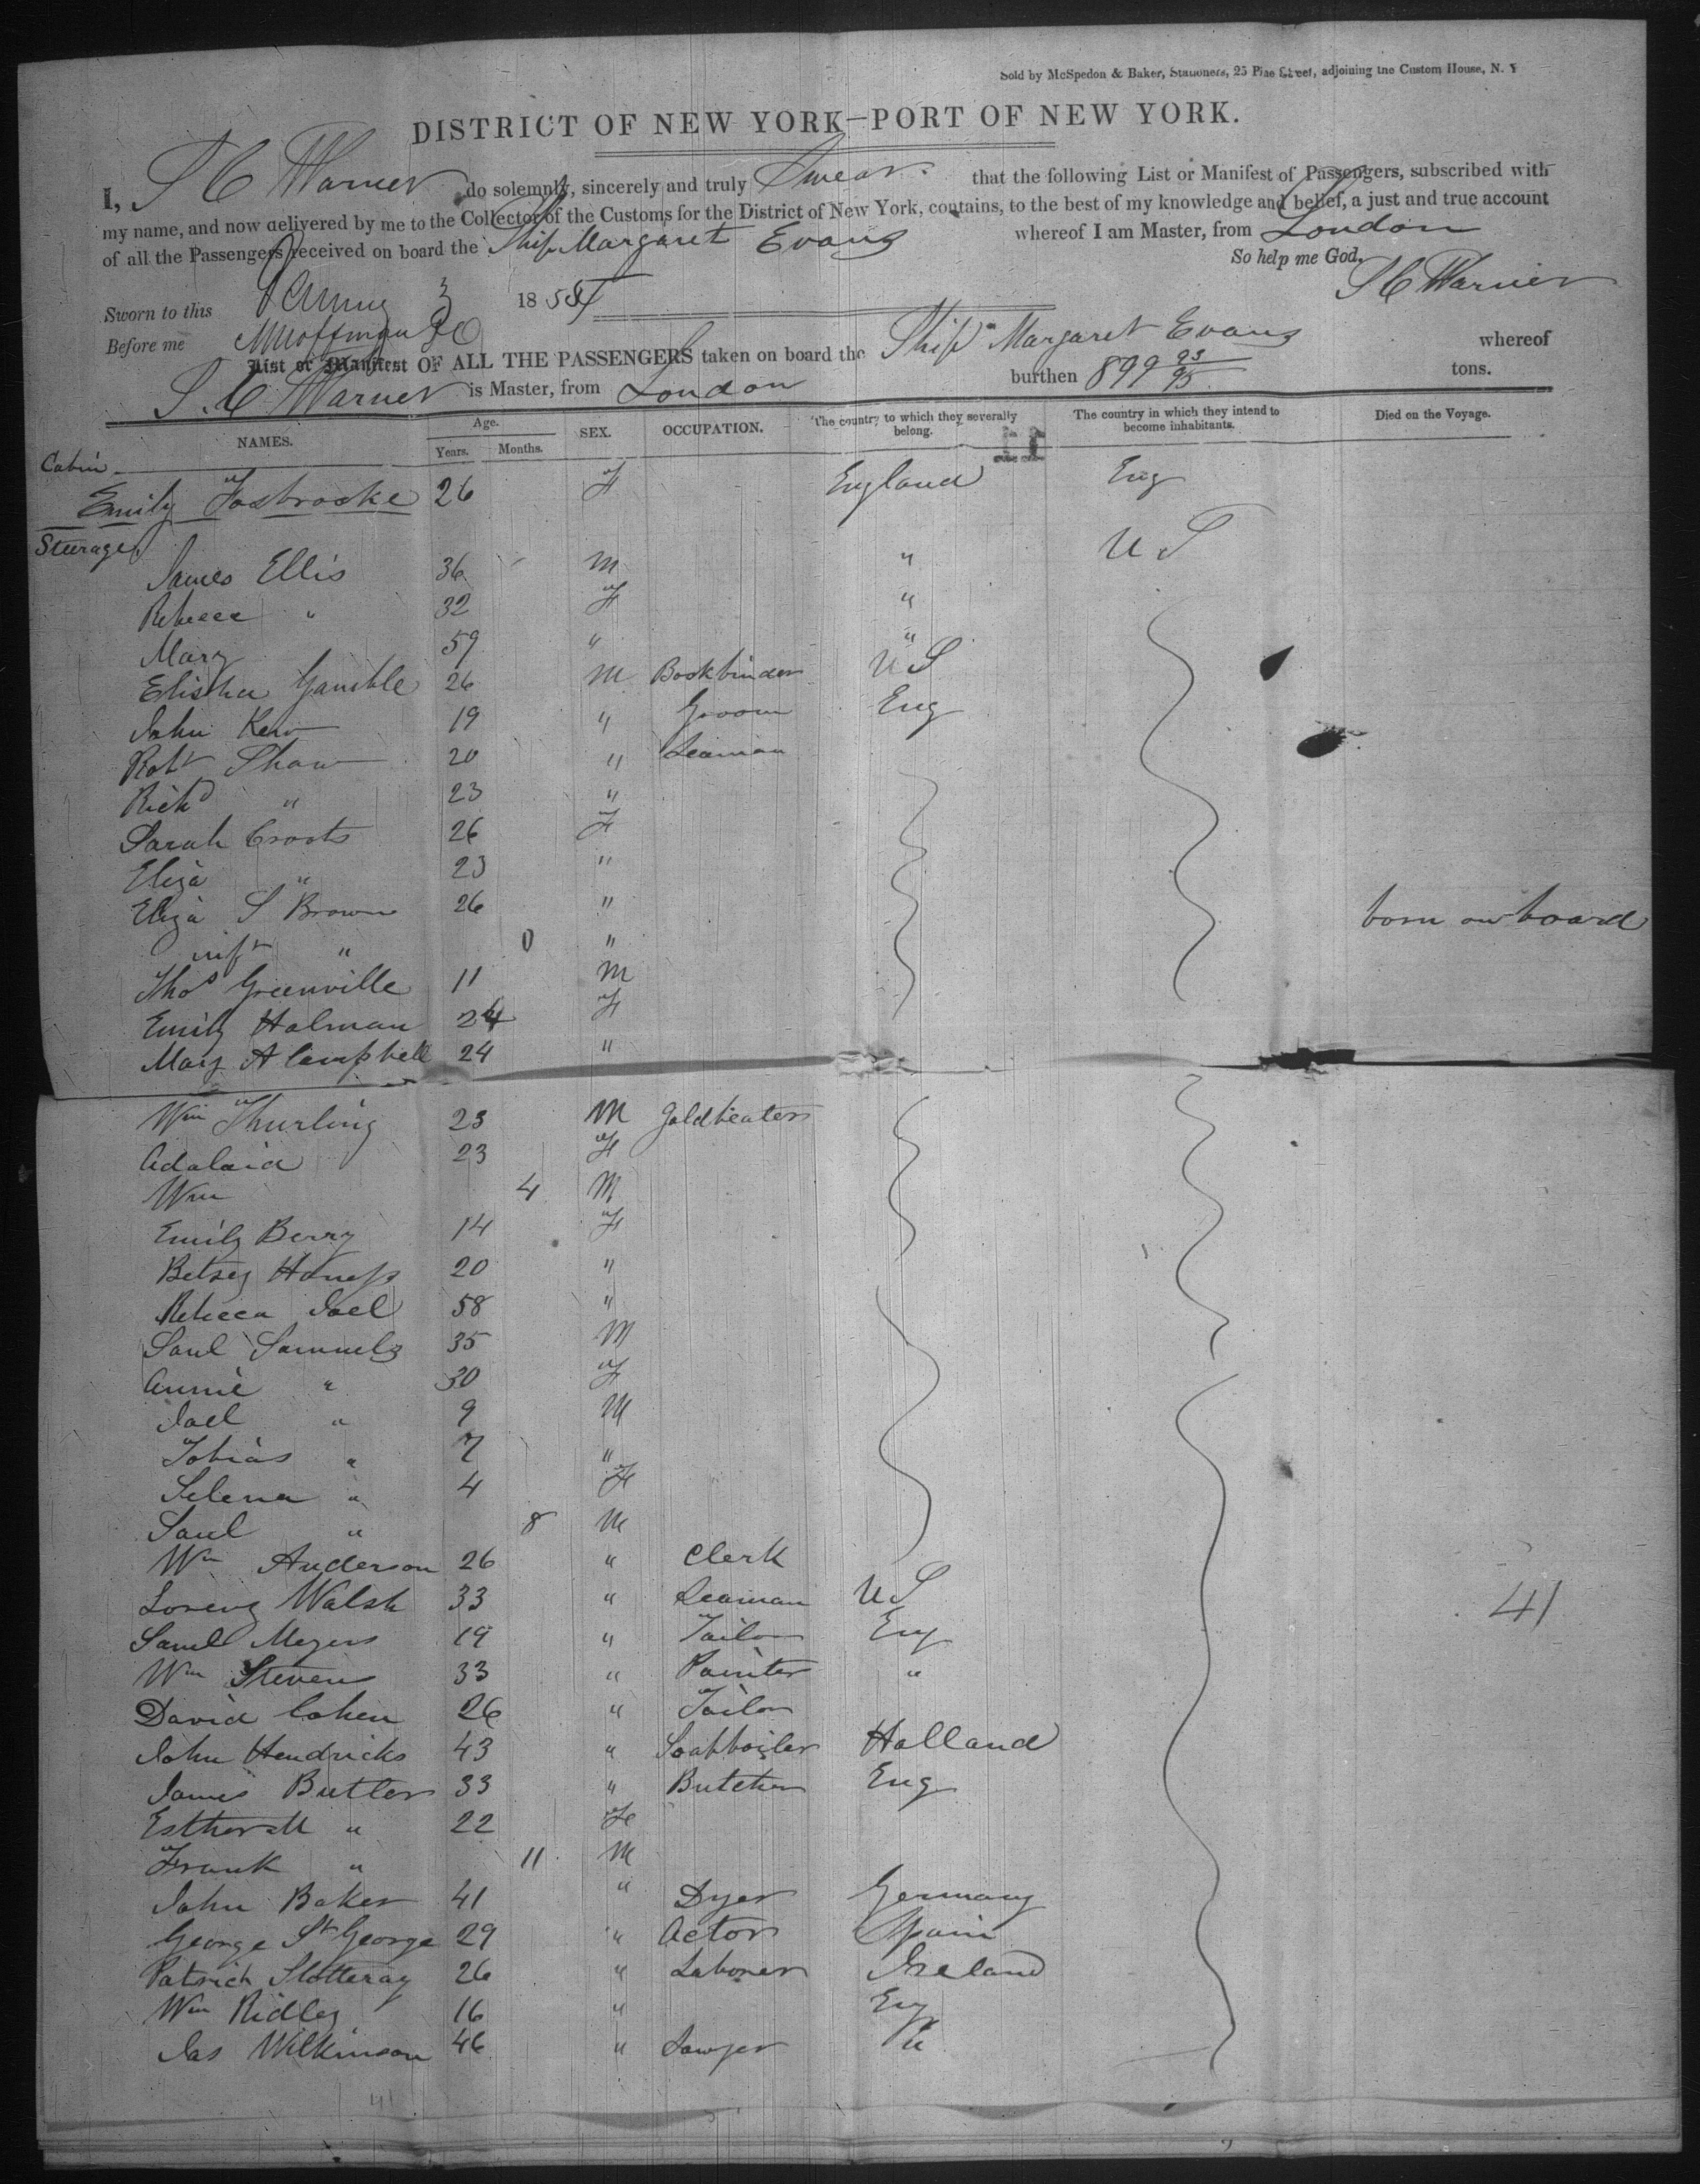 Sold by McSpedon & Baker, Stationers, 25 Pine Street, adjoining the Custom House, N. Y
DISTRICT OF NEW YORK—PORT OF NEW YORK.
I, S C Warner do solemnly, sincerely and truly Swear that the following List or Manifest of Passengers, subscribed with
my name, and now delivered by me to the Collector of the Customs for the District of New York, contains, to the best of my knowledge and belief, a just and true account
of all the Passengers received on board the Ship Margaret Evans whereof I am Master, from London
So help me God. S C Warner
Sworn to this 3 185
Before me
List or Manifest OF ALL THE PASSENGERS taken on board the Ship Margaret Evans whereof
S. C Warner is Master, from London burthen 899 93/95 tons.
NAMES. Age. Years. Months. SEX. OCCUPATION. The country to which they severally belong. The country in which they intend to become inhabitants. Died on the Voyage.
Cabin
Emily Fosbrooke 26 F England Eng
Steerage.
James Ellis 36 M " U S
Rebecca " 32 F "
Mary 59 " "
Elisha Gamble 26 M Bookbinder U S
John Kew 19 " Groom Eng
Robt Shaw 20 " Seaman
Richd " 23 "
Sarah Croots 26 F
Eliza " 23 "
Eliza S Brown 26 "
inft " 0 " born on board
Thos Greenville 11 M
Emily Holman 24 F
Mary A Campbell 24 "
Wm Thurling 23 M Goldbeater
Adalaid 23 F
Wm 4 M
Emily Berry 14 F
Betsey 20 "
Rebecca Joel 58 "
Saul Samuels 35 M
Annie " 30 F
Joel " 9 M
Tobias " 7 "
Selena " 4 F
Saul " 8 M
Wm Anderson 26 " Clerk
Lorenz Walsh 33 " Seaman U S
Saml Meyers 19 " Tailor Eng
Wm Stevens 33 " Painter "
David Cohen 26 " Tailor
John Hendricks 43 " Soapboiler Holland
James Butler 33 " Butcher Eng
Esther M " 22 F
Frank " 11 M
John Baker 41 " Dyer Germany
George St George 29 " Actor Spain
Patrick Slatteray 26 " Laborer Ireland
Wm Ridley 16 " Eng
Jas Wilkinson 46 " Sawyer "
41
41